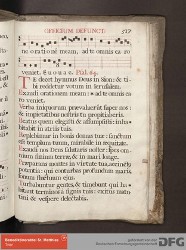 OFFICIUM DEFUNCT.
ne orationem meam: ad te omnis caro
veniet. Euouae. Psal. 64.
Te decet hymnus Deus in Sion: & tibi
reddetur votum in Jerusalem.
Exaudi orationem meam: * ad te omnis caro
veniet.
Verba iniquorum prævaluerunt super nos:
& impietatibus nostris tu propitiaberis.
Beatus quem elegisti & assumpsisti: inhabitabit
in atriis tuis.
Replebimur in bonis domus tuæ: sanctum
est templum tuum, mirabile in æquitate.
Exaudi nos Deus salutaris noster: spes omnium
finium terræ, & in mari longe.
Præparans montes in virtute tua, accinctus
potentia: qui conturbas profundum maris,
sonum fluctuum ejus.
Turbabuntur gentes, & timebunt qui habitant
terminos a signis tuis: exitus matutini
& vespere delectabis.
DFG